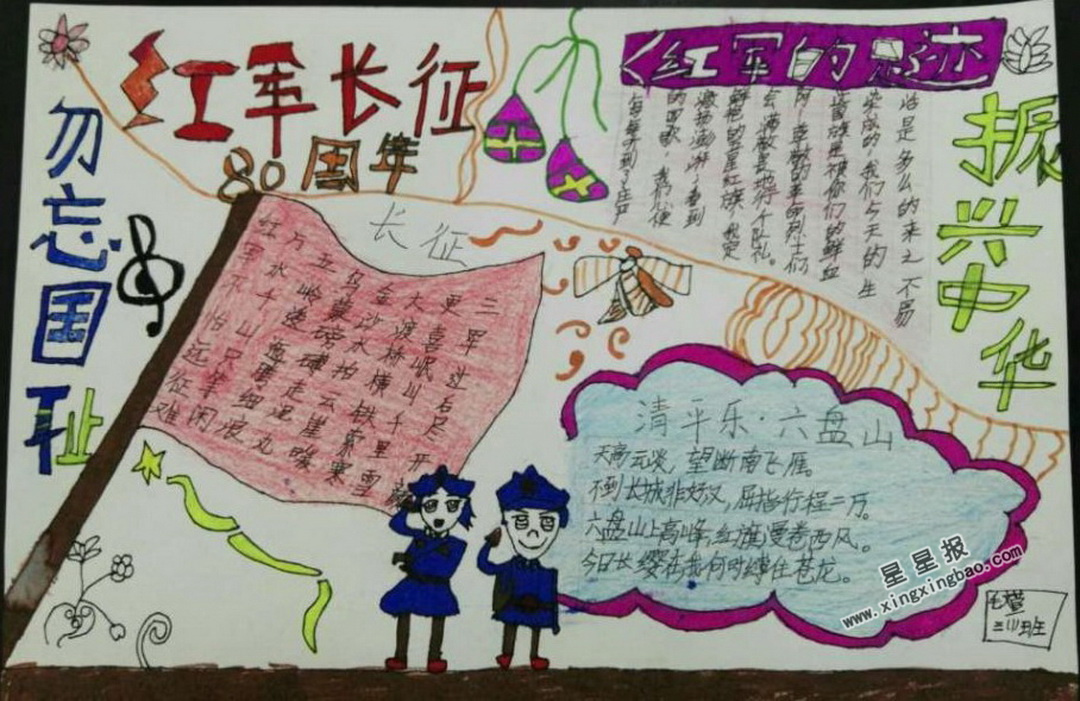 红军长征
80周年
勿忘国耻
红军的足迹
到了庄严
的国歌，我们便
激扬澎湃，看到
鲜艳的五星红旗，我定
会满敬意地行个队礼。
阿，奉献的革命烈士们
旗是被你们的鲜血
染成的，我们今天的生
活是多么的来之不易
振兴中华
长征
红军不怕远征难
万水千山只等闲
五岭逶迤腾细浪
乌蒙磅礴走泥丸
金沙水拍云崖暖
大渡桥横铁索寒
更喜岷山千里雪
三军过后尽开颜
清平乐·六盘山
天高云淡，望断南飞雁。
不到长城非好汉，屈指行程二万。
六盘山上高峰，红旗漫卷西风。
今日长缨在我，何时缚住苍龙。
星星报
www.xingxingbao.com
三(1)班